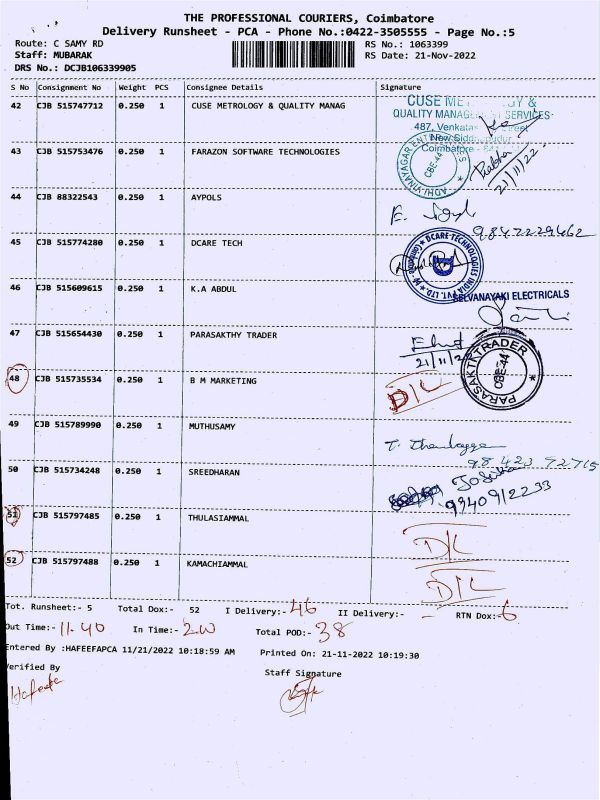 THE PROFESSIONAL COURIERS, Coimbatore
Delivery Runsheet - PCA - Phone No.:0422-3505555 - Page No.:5
Route: C SAMY RD
RS No.: 1063399
Staff: MUBARAK
RS Date: 21-Nov-2022
DRS No.: DCJB106339905
S No Consignment No Weight PCS Consignee Details Signature
42 CJB 515747712 0.250 1 CUSE METROLOGY & QUALITY MANAG
CUSE ME Y &
QUALITY MANAG SERVICES
487, Venkatas Street
New Sidd
Coimbatore - 641
43 CJB 515753476 0.250 1 FARAZON SOFTWARE TECHNOLOGIES
ADHI VINAYAGAR ENTERPRISES
CBE-44
Prabha
21/11/22
44 CJB 88322543 0.250 1 AYPOLS
9847229462
45 CJB 515774280 0.250 1 DCARE TECH
DCARE TECHNOLOGIES INDIA PVT. LTD.
46 CJB 515609615 0.250 1 K.A ABDUL
SELVANAYAKI ELECTRICALS
47 CJB 515654430 0.250 1 PARASAKTHY TRADER
21/11/22
PARASAKTI TRADER
CBE-44
48 CJB 515735534 0.250 1 B M MARKETING
D/L
49 CJB 515789990 0.250 1 MUTHUSAMY
98423 92715
50 CJB 515734248 0.250 1 SREEDHARAN
9940912233
51 CJB 515797485 0.250 1 THULASIAMMAL
D/L
52 CJB 515797488 0.250 1 KAMACHIAMMAL
D/L
Tot. Runsheet:- 5 Total Dox:- 52 I Delivery:- 46 II Delivery:- - RTN Dox:- 6
Out Time:- 11.40 In Time:- 2.00 Total POD:- 38
Entered By :HAFEEFAPCA 11/21/2022 10:18:59 AM Printed On: 21-11-2022 10:19:30
Verified By
Staff Signature
Hafeefa